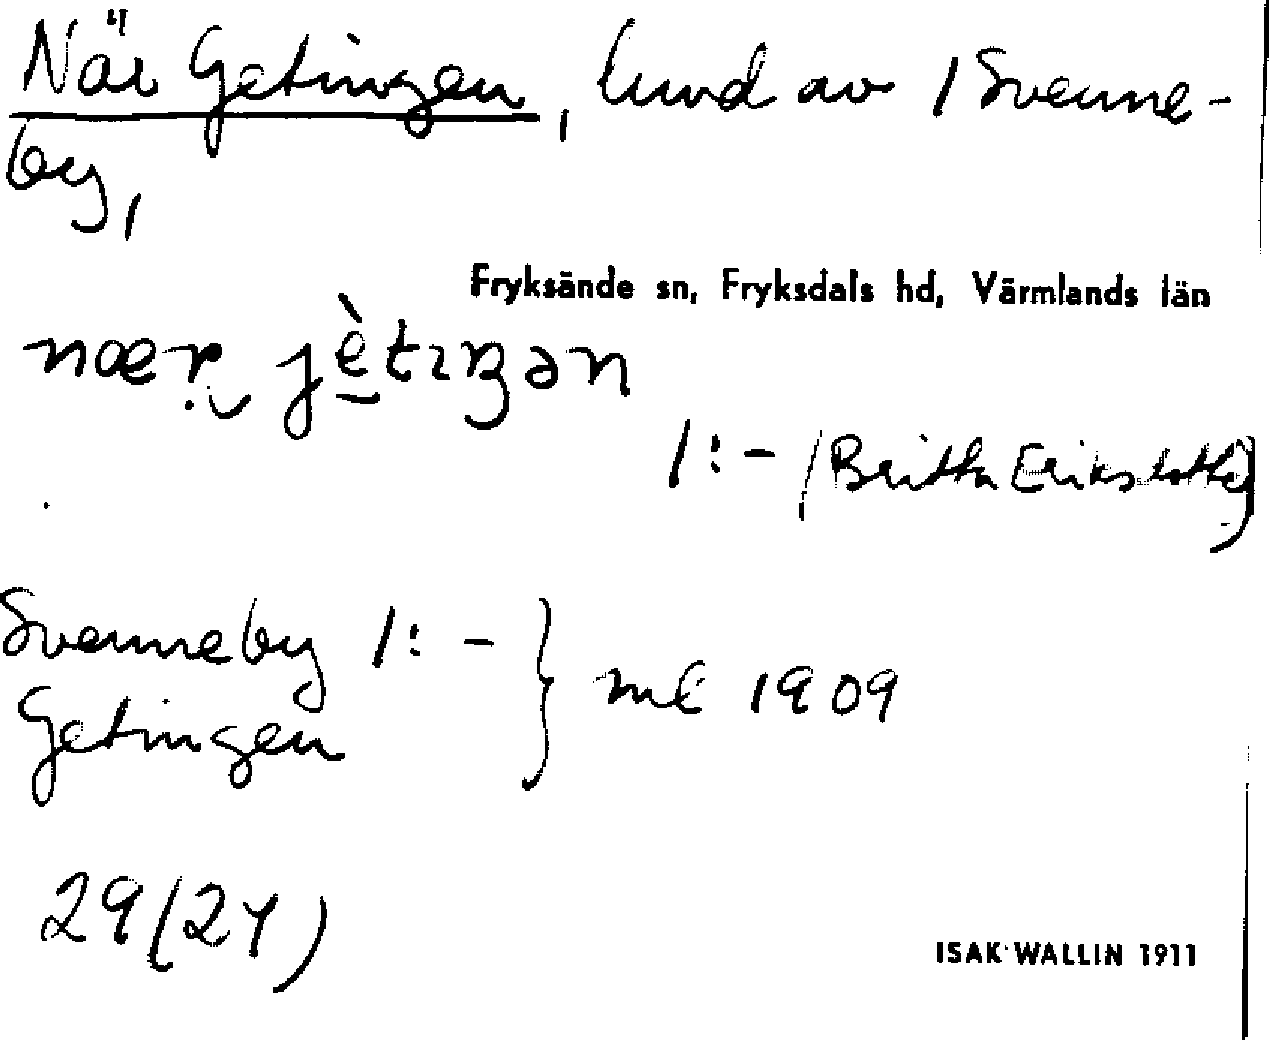 När Getingen, lund av 1 Svenne-
by,
Fryksände sn, Fryksdals hd, Värmlands län
nær jètiŋən
1:- (Britta Eriksdotter)
Svenneby 1:- } ml 1909
Getingen
29(24)
ISAK WALLIN 1911